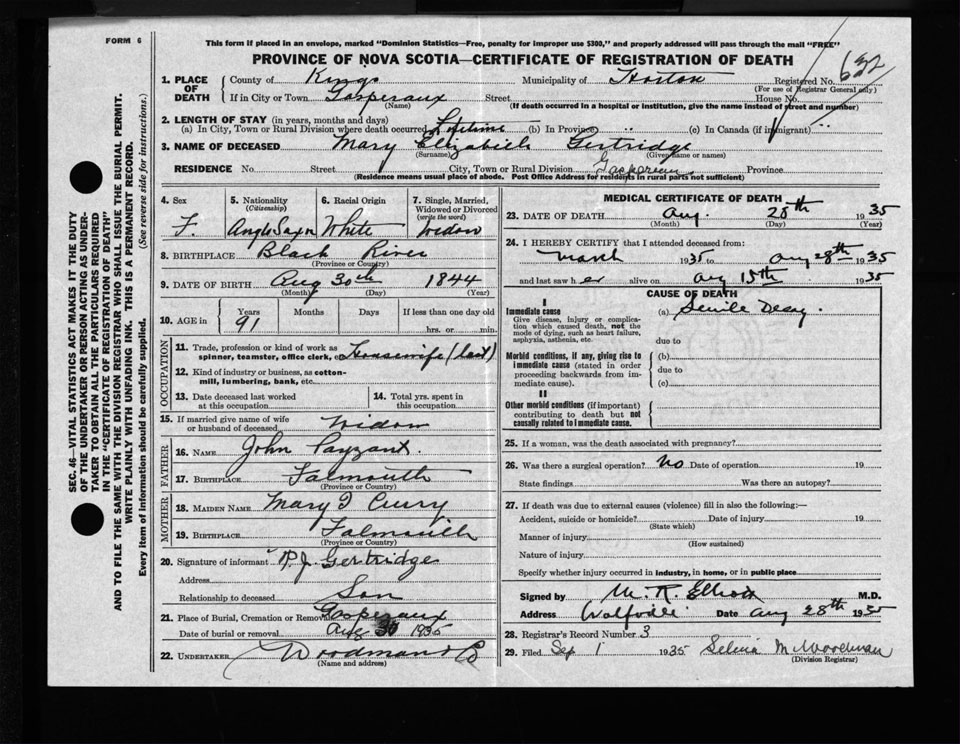 FORM 6
This form if placed in an envelope, marked "Dominion Statistics—Free, penalty for improper use $300," and properly addressed will pass through the mail "FREE"
PROVINCE OF NOVA SCOTIA—CERTIFICATE OF REGISTRATION OF DEATH
1. PLACE OF DEATH
County of Kings Municipality of Horton Registered No. 632
(For use of Registrar General only)
If in City or Town Gasperaux Street House No.
(Name) (If death occurred in a hospital or institution, give the name instead of street and number)
2. LENGTH OF STAY (in years, months and days)
(a) In City, Town or Rural Division where death occurred Lifetime (b) In Province " (c) In Canada (if immigrant) "
3. NAME OF DECEASED Mary Elizabeth Gertridge
(Surname) (Given name or names)
RESIDENCE No. Street City, Town or Rural Division Gaspereau Province
(Residence means usual place of abode. Post Office Address for residents in rural parts not sufficient)
4. Sex F.
5. Nationality (Citizenship) Anglo Saxn
6. Racial Origin White
7. Single, Married, Widowed or Divorced (write the word) Widow
8. BIRTHPLACE Black River
(Province or Country)
9. DATE OF BIRTH Aug 30th 1844
(Month) (Day) (Year)
10. AGE in Years 91 Months Days If less than one day old
hrs. or min.
OCCUPATION
11. Trade, profession or kind of work as spinner, teamster, office clerk, etc. Housewife (last)
12. Kind of industry or business, as cotton-mill, lumbering, bank, etc.
13. Date deceased last worked at this occupation
14. Total yrs. spent in this occupation
15. If married give name of wife or husband of deceased Widow
FATHER
16. NAME John Payzant.
17. BIRTHPLACE Falmouth
(Province or Country)
MOTHER
18. MAIDEN NAME Mary I Curry
19. BIRTHPLACE Falmouth
(Province or Country)
20. Signature of informant P. J. Gertridge
Address
Relationship to deceased Son
21. Place of Burial, Cremation or Removal Gasperaux
Date of burial or removal Aug 30 1935
22. UNDERTAKER Woodman & Co
(Name and address)
MEDICAL CERTIFICATE OF DEATH
23. DATE OF DEATH Aug. 28th 1935
(Month) (Day) (Year)
24. I HEREBY CERTIFY that I attended deceased from:
March 1935 to Aug 28th 1935
and last saw her alive on Aug 15th 1935
CAUSE OF DEATH
I
Immediate cause (a) Senile Decay.
Give disease, injury or complication which caused death, not the mode of dying, such as heart failure, asphyxia, asthenia, etc.
due to
Morbid conditions, if any, giving rise to immediate cause (stated in order proceeding backwards from immediate cause).
(b)
due to
(c)
II
Other morbid conditions (if important) contributing to death but not causally related to immediate cause.
25. If a woman, was the death associated with pregnancy?
26. Was there a surgical operation? No Date of operation 19
State findings Was there an autopsy?
27. If death was due to external causes (violence) fill in also the following:—
Accident, suicide or homicide? Date of injury 19
(State which)
Manner of injury
(How sustained)
Nature of injury
Specify whether injury occurred in industry, in home, or in public place
Signed by M. R. Elliott M.D.
Address Wolfville Date Aug 28th 1935
28. Registrar's Record Number 3
29. Filed Sep 1 1935 Selina M Woodman
(Division Registrar)
SEC. 46—VITAL STATISTICS ACT MAKES IT THE DUTY
OF THE UNDERTAKER OR PERSON ACTING AS UNDERTAKER TO OBTAIN ALL THE PARTICULARS REQUIRED
IN THE "CERTIFICATE OF REGISTRATION OF DEATH"
AND TO FILE THE SAME WITH THE DIVISION REGISTRAR WHO SHALL ISSUE THE BURIAL PERMIT.
WRITE PLAINLY WITH UNFADING INK. THIS IS A PERMANENT RECORD.
Every item of information should be carefully supplied. (See reverse side for instructions.)